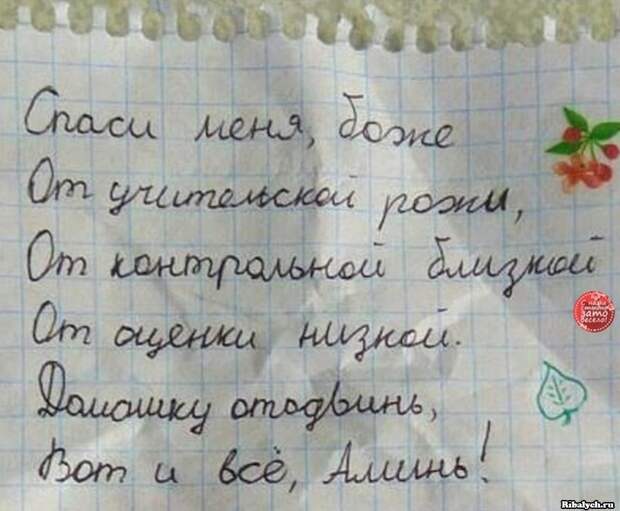 Спаси меня, боже
От учительской рожи,
От контрольной близкой
От оценки низкой.
Домашку отодвинь,
Вот и всё, Аминь!
зато
весело!
Ribalych.ru